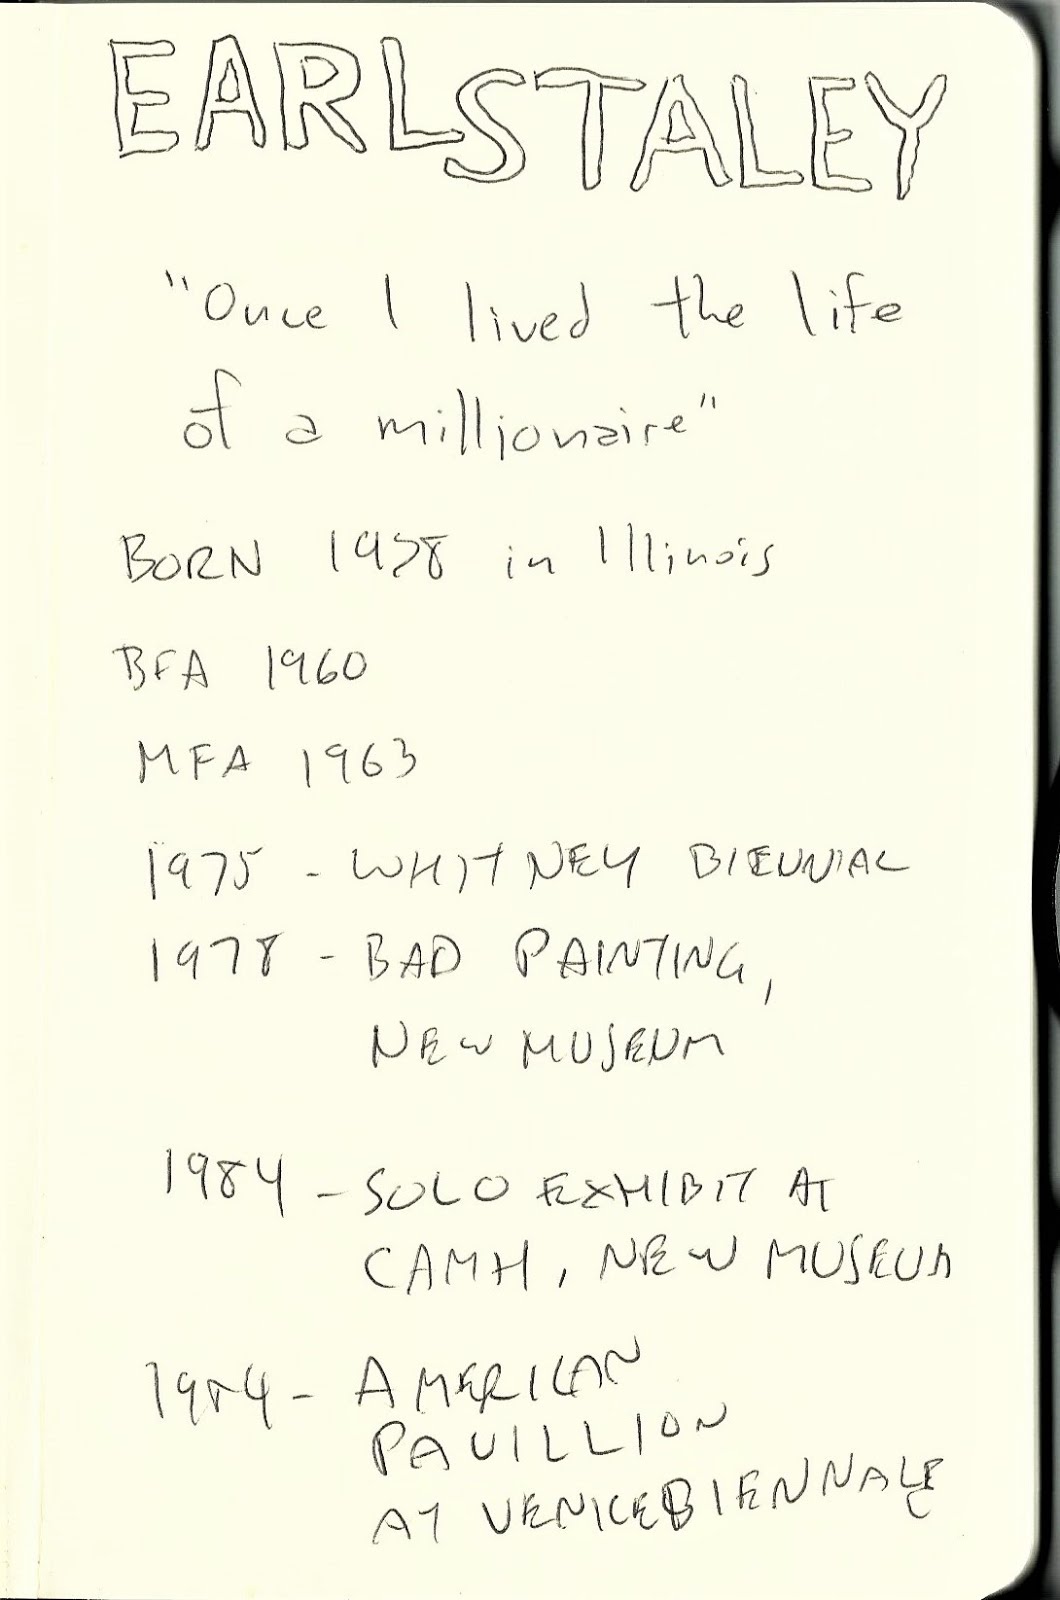 EARL STALEY
"Once I lived the life
of a millionaire"
BORN 1938 in Illinois
BFA 1960
MFA 1963
1975 - WHITNEY BIENNIAL
1978 - BAD PAINTING,
NEW MUSEUM
1984 - SOLO EXHIBIT AT
CAMH, NEW MUSEUM
1984 - AMERICAN
PAVILLION
AT VENICE BIENNALE